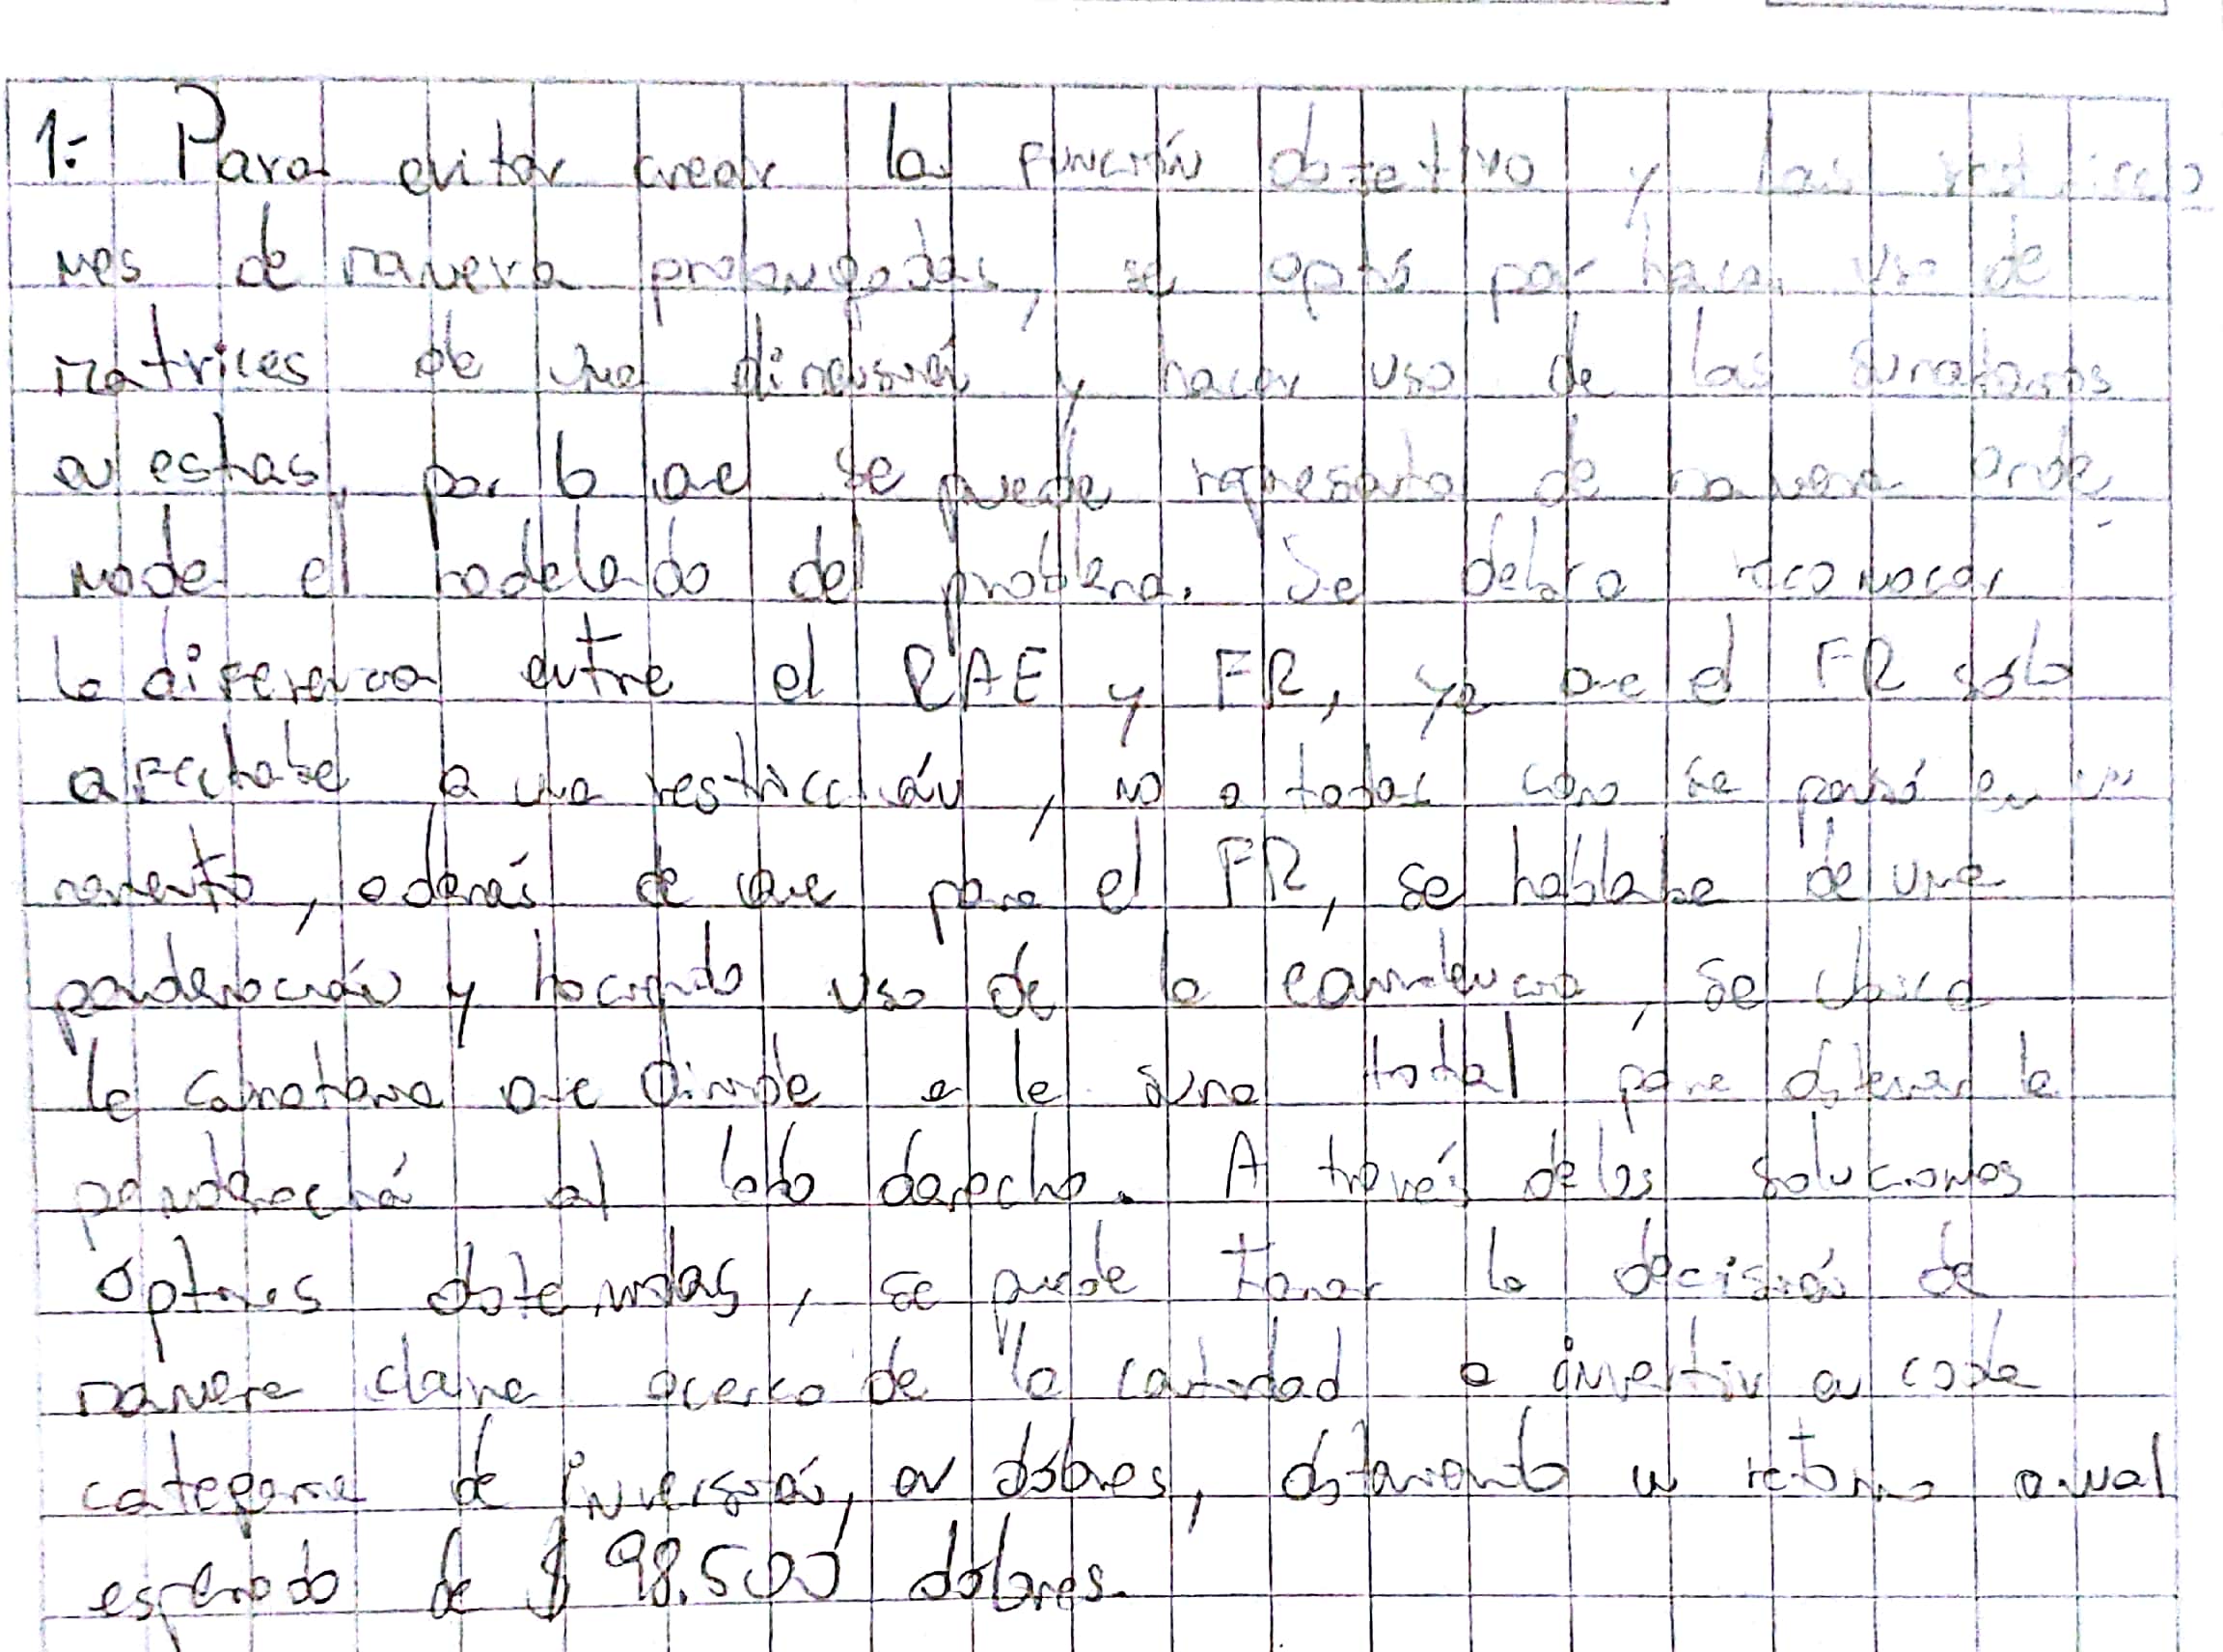 1.- Para evitar crear la función objetivo y las restriccio
nes de manera prolongadas, se optó por hacer uso de
matrices de una dimensión y hacer uso de las sumatorias
en estas, por lo que se puede representar de manera orde
nada el modelado del problema. Se debía reconocer
la diferencia entre el RAE y FR, ya que el FR solo
afectaba a una restricción, no a todas como se pensó en un
momento, además de que para el FR, se hablaba de una
ponderación y haciendo uso de la equivalencia, se ubica
la sumatoria que divide a la suma total para obtener la
ponderación al lado derecho. A través de las soluciones
óptimas obtenidas, se puede tomar la decisión de
manera clara acerca de la cantidad a invertir en cada
categoría de inversión, en dólares, obteniendo un retorno anual
esperado de $ 98.500 dólares.